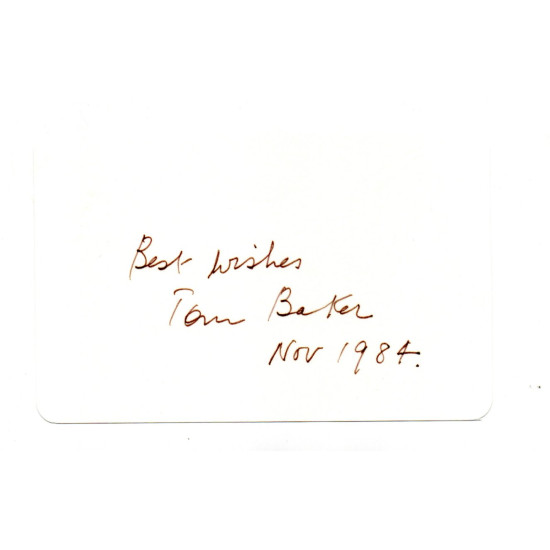 Best wishes
Tom Baker
Nov 1984.